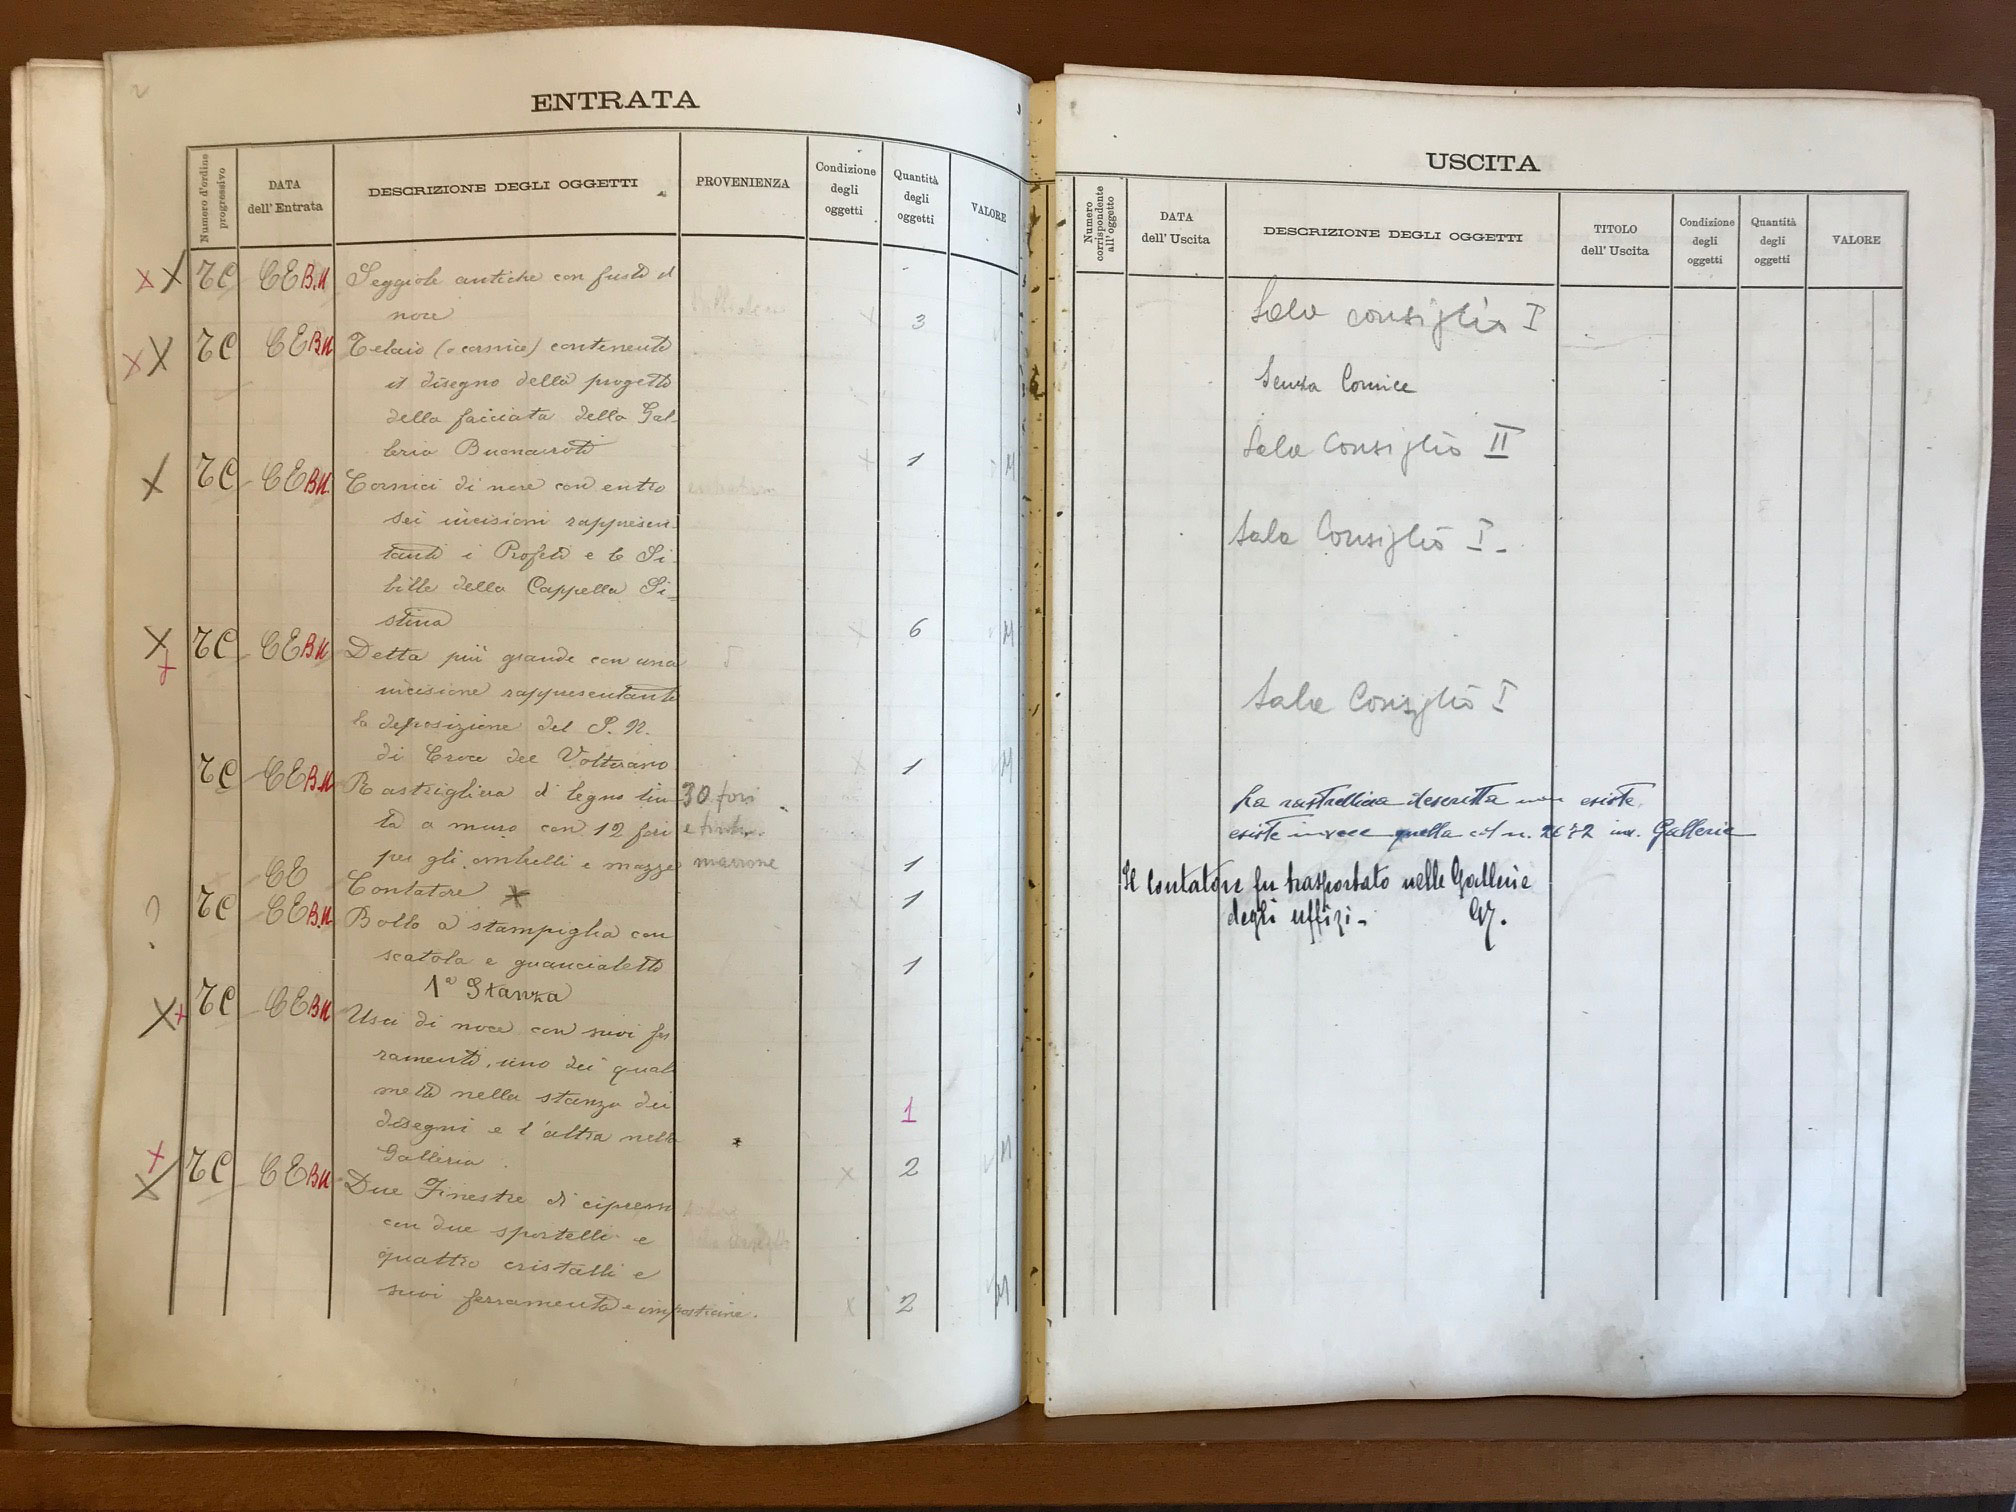 2
ENTRATA
Numero d'ordine progressivo
DATA dell'Entrata
DESCRIZIONE DEGLI OGGETTI
PROVENIENZA
Condizione degli oggetti
Quantità degli oggetti
VALORE
TC CE B.U Seggiole antiche con fusto di
noce 3
TC CE BU Telaio (o cornice) contenente
il disegno della progetto
della facciata della Gal-
leria Buonarroti 1
TC CE BU Cornici di noce con entro
sei incisioni rappresen-
tanti i Profeti e le Si-
bille della Cappella Si-
stina 6
TC CE BU Detta più grande con una
incisione rappresentante
la deposizione del S. N.
di Croce del Volterano 1
TC CE BU Rastrigliera di legno tin- 30 fori
ta a muro con 12 fori e
per gli ombrelli e mazze marrone 1
CE Contatore 1
TC CE B.U. Bollo a stampiglia con
scatola e guancialetto 1
1ª Stanza
TC CE BU Usci di noce con suoi fer
ramenti, uno dei quali
mette nella stanza dei
disegni e l'altra nella 1
Galleria. 2
TC CE BU Due Finestre di cipresso
con due sportelli e
quattro cristalli e
suoi ferramenti e impostine. 2
USCITA
Numero corrispondente all'oggetto
DATA dell'Uscita
DESCRIZIONE DEGLI OGGETTI
TITOLO dell'Uscita
Condizione degli oggetti
Quantità degli oggetti
VALORE
Sala consiglio I
Senza Cornice
Sala Consiglio II
Sala Consiglio I-
Sala Consiglio I
La rastrelliera descritta non esiste,
esiste invece quella col n. 2672 inv. Gallerie
Il Contatore fu trasportato nelle Gallerie
degli Uffizi-